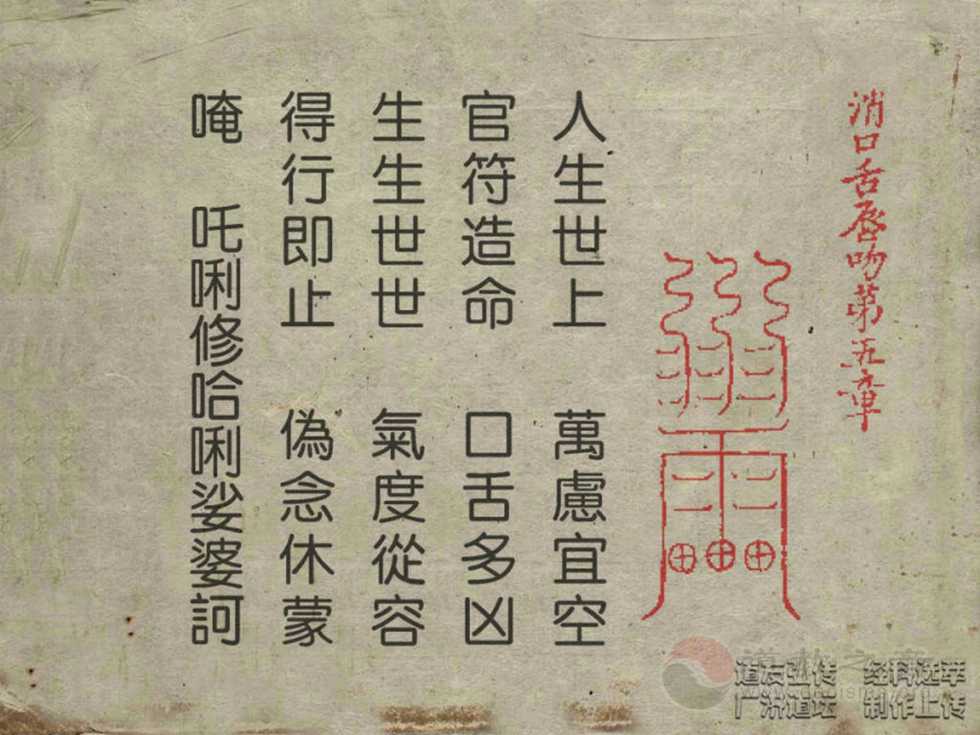 消口舌唇吻第五章
人生世上 萬慮宜空
官符造命 口舌多凶
生生世世 氣度從容
得行即止 偽念休蒙
唵 吒唎修哈唎娑婆訶
道友弘传 经科选萃
广济道坛 制作上传